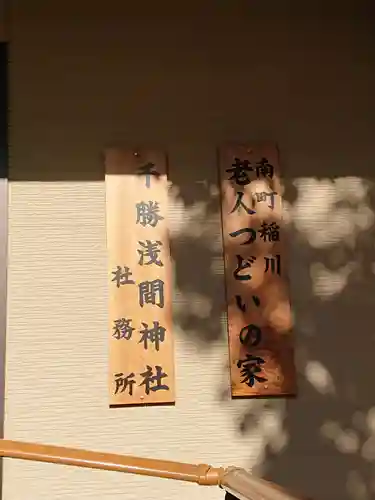 南町稲川
老人つどいの家
千勝浅間神社
社務所